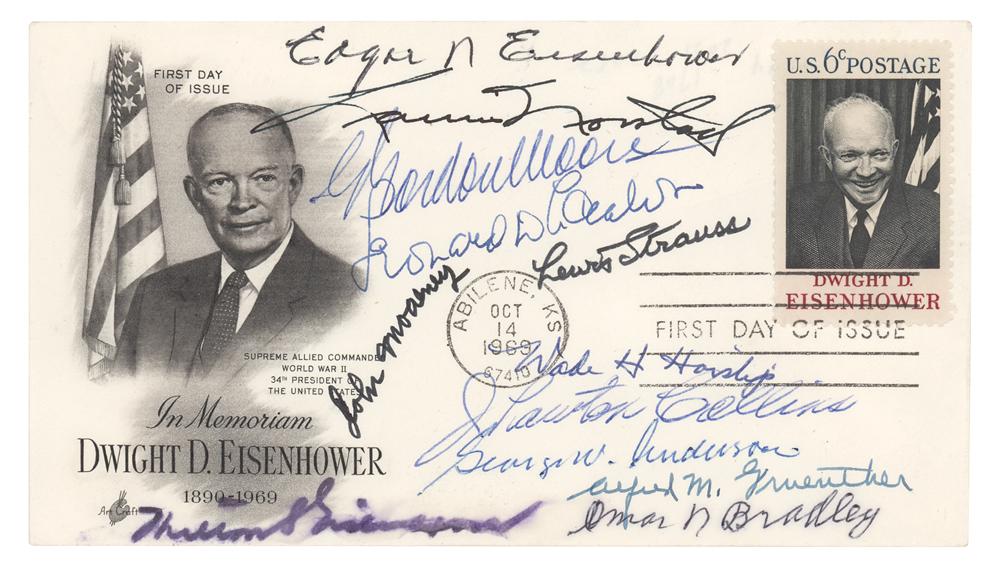 FIRST DAY
OF ISSUE
Edgar N Eisenhower
U.S. 6c POSTAGE
Lauris Norstad
GBordon Moore
Leonard D
Lewis Strauss
John
DWIGHT D.
EISENHOWER
ABILENE, KS
OCT
14
1969
67410
FIRST DAY OF ISSUE
SUPREME ALLIED COMMANDE
WORLD WAR II
34TH PRESIDENT OF
THE UNITED STATES
Wade H Haislip
J Lawton Collins
In Memoriam
DWIGHT D. EISENHOWER
1890-1969
George W. Anderson
Alfred M. Gruenther
Omar N Bradley
Art Craft
Milton S Eisenhower